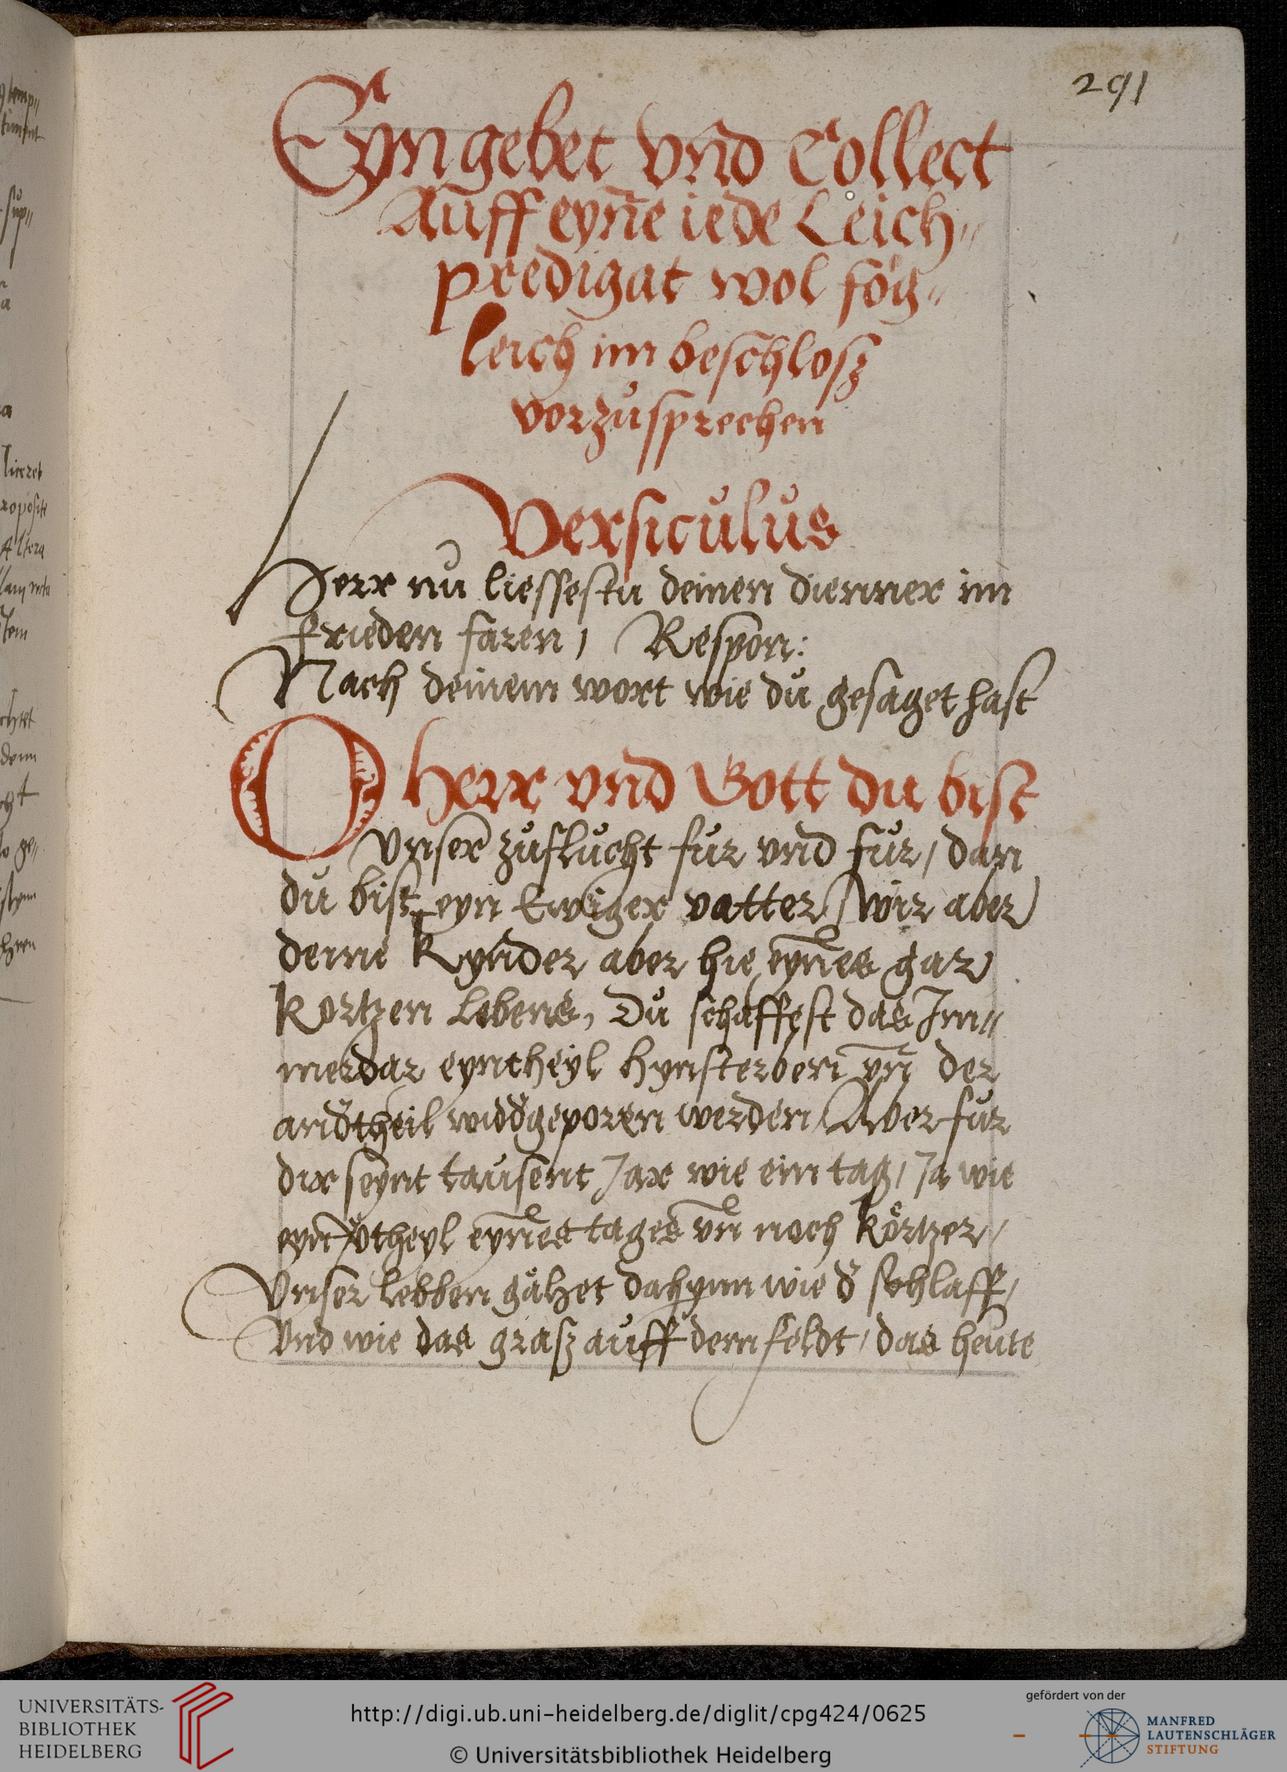 291
Eyn gebet vnd Collect
Auff eyne iede Leich„
predigat wol fög„
leich im beschlosz
vorzusprechen
Versiculus
Herr nu liessestu deinen dienner im
frieden faren / Respon:
Nach deinem wort wie du gesaget hast
O herr vnd Gott du bist
Vnser zuflucht fur vnd fur / dan
du bist eyn Ewiger vatter / wir aber
deine Kynder aber hie eynes gar
kortzen Lebens, Du schaffest das Im„
merdar eyntheyl hynsterben vn̄ der
andtheil widdgeporen werden / Aber fur
dir seynt tausent Jar wie ein tag / Ja wie
tages vn̄ noch körtzer /
Vnser lebben gähet dahynn wie d schlaff /
Vnd wie das grasz auff dem feldt / das heute
UNIVERSITÄTS-
BIBLIOTHEK
HEIDELBERG
http://digi.ub.uni-heidelberg.de/diglit/cpg424/0625
© Universitätsbibliothek Heidelberg
gefördert von der
MANFRED
LAUTENSCHLÄGER
STIFTUNG